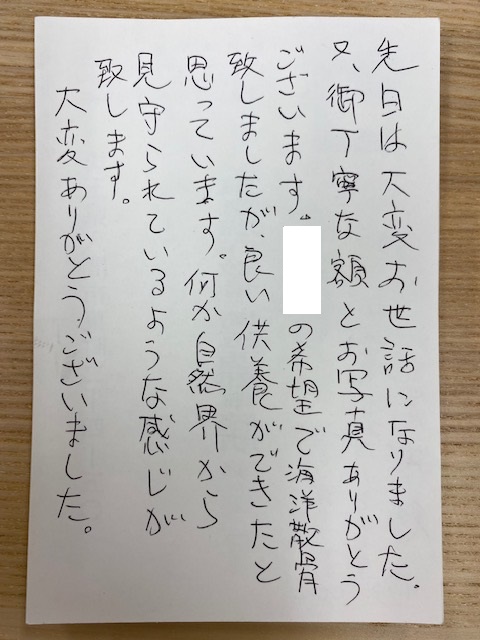 先日は大変お世話になりました。
又、御丁寧な額とお写真ありがとう
ございます。の希望で海洋散骨
致しましたが、良い供養ができたと
思っています。何か自然界から
見守られているような感じが
致します。
大変ありがとうございました。